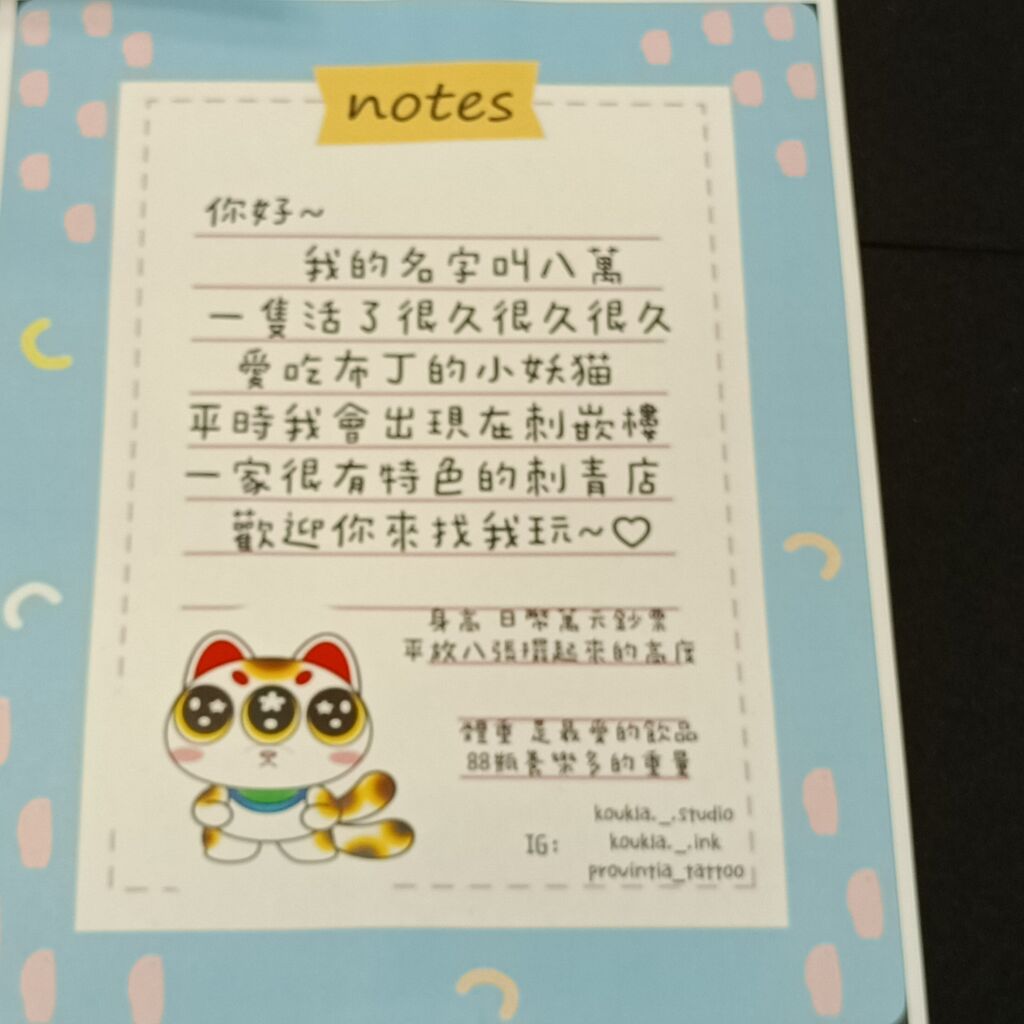 notes
你好~
我的名字叫八萬
一隻活了很久很久很久
愛吃布丁的小妖貓
平時我會出現在刺嵌樓
一家很有特色的刺青店
歡迎你來找我玩~♡
身高 日幣萬元鈔票
平放八張摺起來的高度
體重 是最愛的飲品
88瓶養樂多的重量
koukla._.studio
IG: koukla._.ink
provintia_tattoo